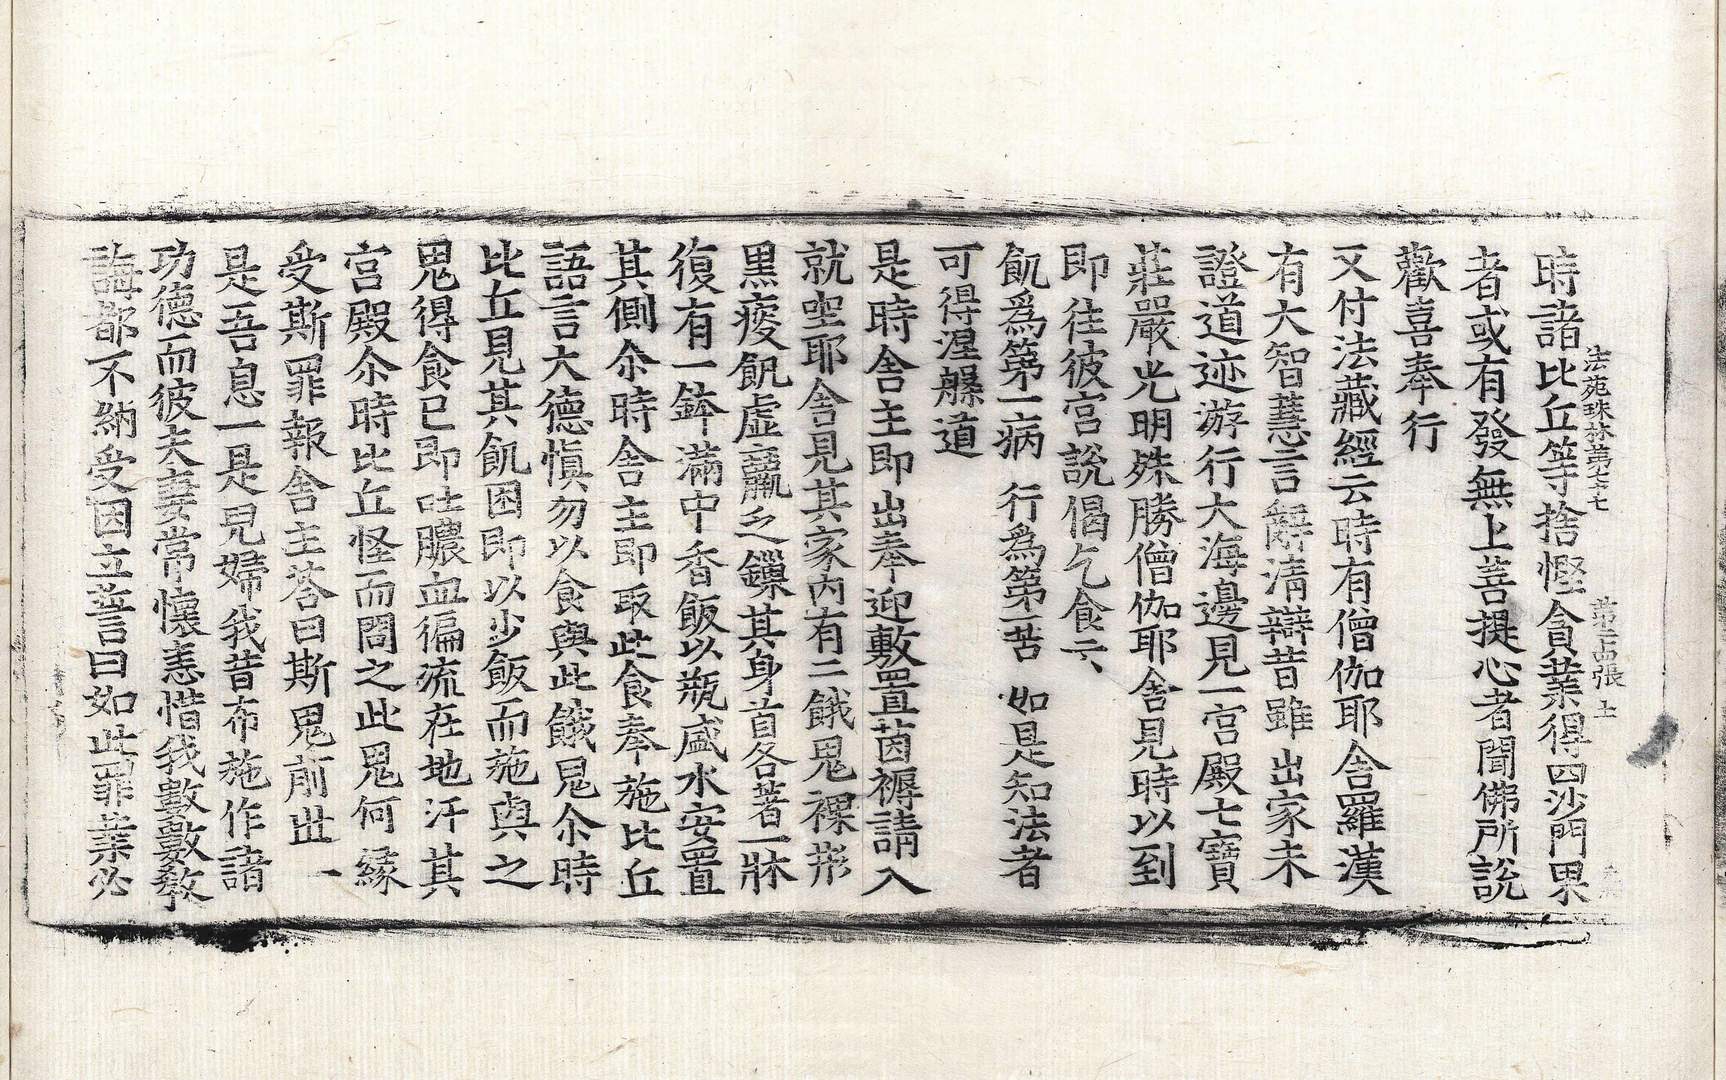 時諸比丘等捨慳貪業得四沙門果
法苑珠林第六七 第二十四張 土
者或有發無上菩提心者聞佛所說
歡喜奉行
又付法藏經云時有僧伽耶舍羅漢
有大智慧言辭清辯昔雖出家未
證道迹游行大海邊見一宫殿七寶
莊嚴光明殊勝僧伽耶舍見時以到
即往彼宫說偈乞食云
飢爲第一病 行爲第一苦 如是知法者
可得涅槃道
是時舍主即出奉迎敷置茵褥請入
就坐耶舍見其家内有二餓鬼裸形
黑瘦飢虛羸乏鏁其身首各著一牀
復有一鉢滿中香飯以瓶盛水安置
其側尒時舍主即取此食奉施比丘
語言大德慎勿以食與此餓鬼尒時
比丘見其飢困即以少飯而施與之
鬼得食已即吐膿血徧流在地汙其
宫殿尒時比丘怪而問之此鬼何緣
受斯罪報舍主荅曰斯鬼前世一
是吾息一是兒婦我昔布施作諸
功德而彼夫妻常懷恚惜我數數教
誨都不納受因立誓曰如此罪業必